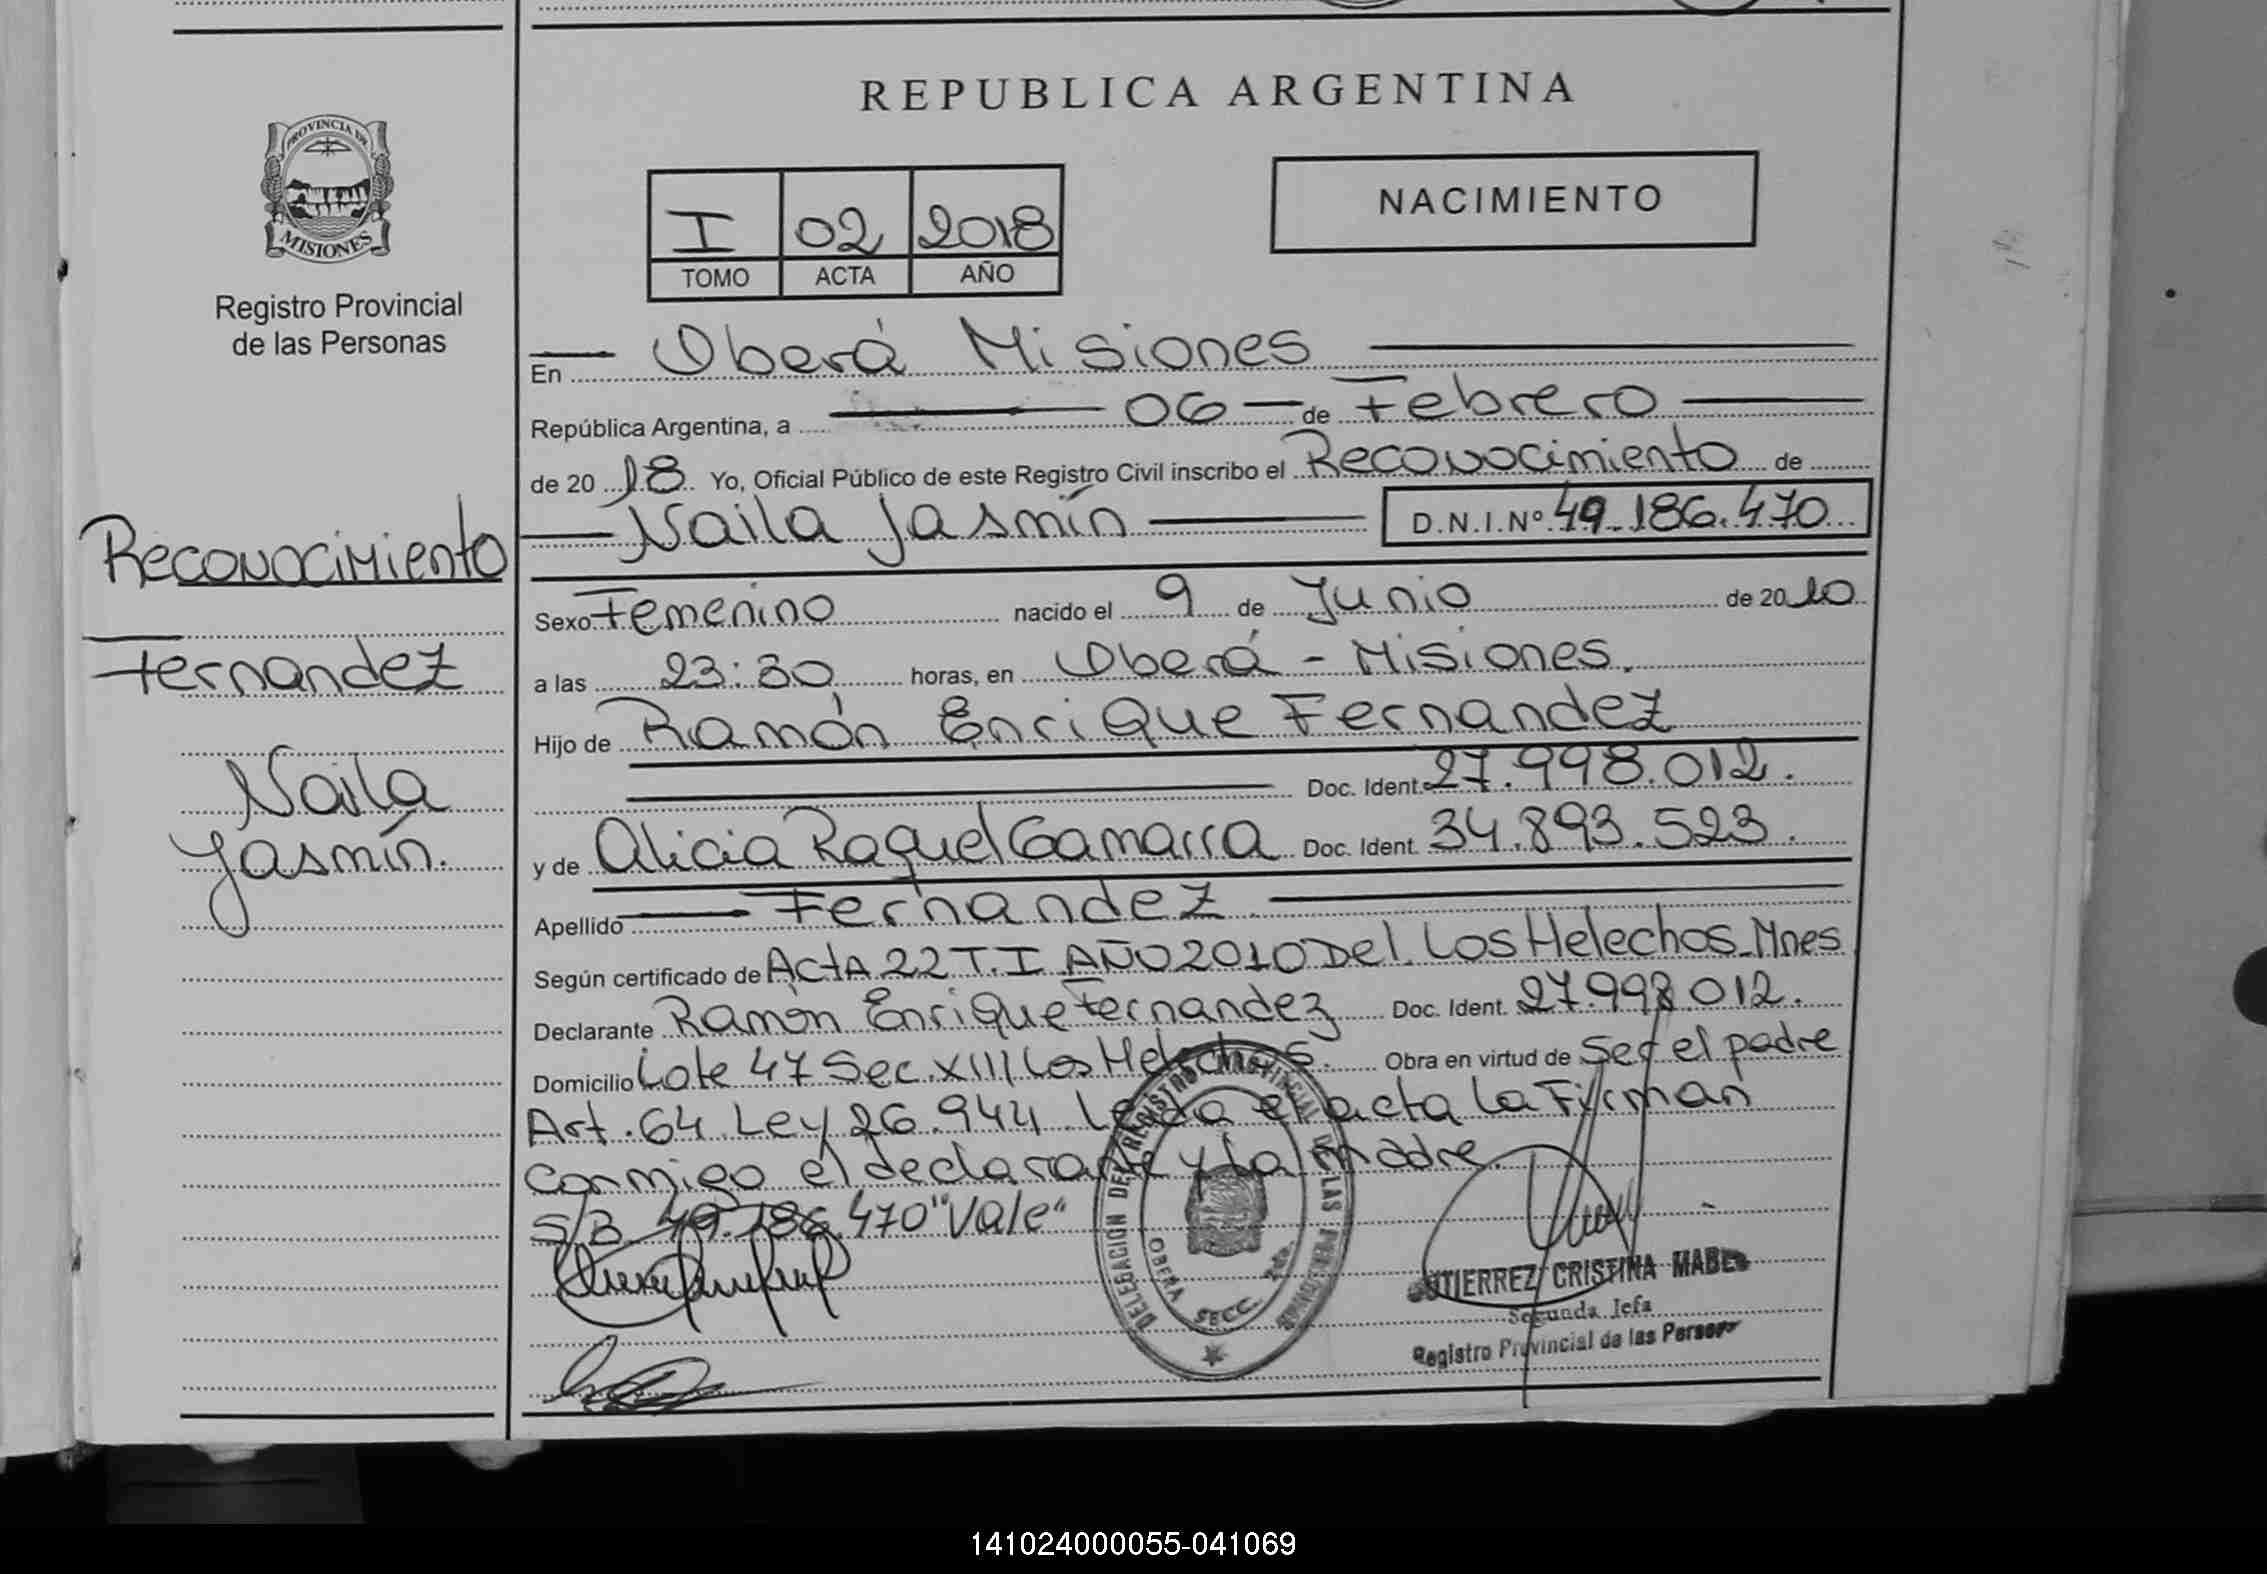 REPUBLICA ARGENTINA
PROVINCIA DE
MISIONES
Registro Provincial
de las Personas
I 02 2018
TOMO ACTA AÑO
NACIMIENTO
En Oberá Misiones
República Argentina, a 06 de Febrero
de 20 18 Yo, Oficial Público de este Registro Civil inscribo el Reconocimiento de
Naila Jasmín D.N.I.Nº 49.186.470
Reconocimiento
Fernandez
Naila
Jasmín.
Sexo Femenino nacido el 9 de Junio de 2010
a las 23:30 horas, en Oberá - Misiones.
Hijo de Ramón Enrique Fernandez
Doc. Ident. 27.998.012.
y de Alicia Raquel Gamarra Doc. Ident. 34.893.523.
Apellido Fernandez
Según certificado de Acta 22 T.I AÑO 2010 Del. Los Helechos-Mnes
Declarante Ramón Enrique Fernandez Doc. Ident. 27.998.012.
Domicilio Lote 47 Sec. XIII Los Helechos. Obra en virtud de Ser el padre
Art. 64 Ley 26.944 Leída el acta La Firman
conmigo el declarante y la madre.
S/B 49.186.470 "Vale"
DELEGACION DEL REGISTRO PROVINCIAL DE LAS PERSONAS
OBERA SECC. 2da.
GUTIERREZ CRISTINA MABEL
Segunda Jefa
Registro Provincial de las Personas
141024000055-041069